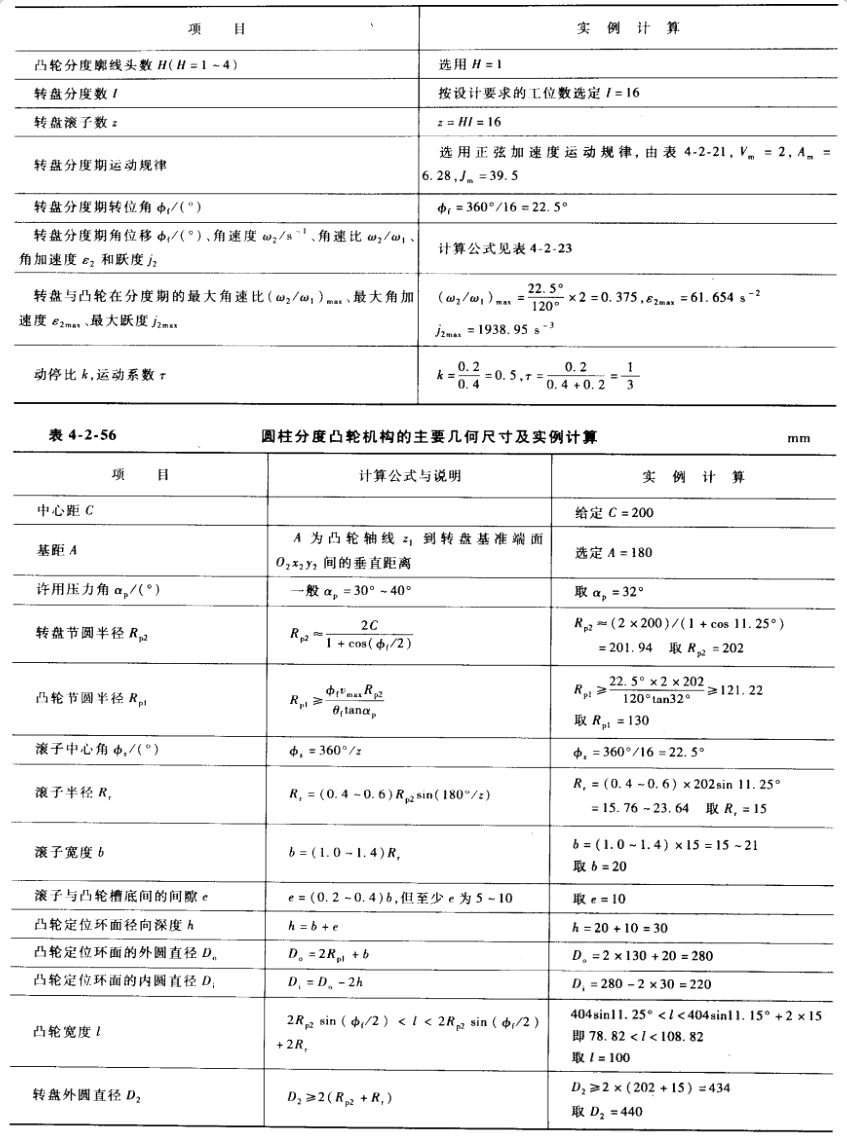 项 目 实 例 计 算
凸轮分度廓线头数 H(H=1~4) 选用 H=1
转盘分度数 I 按设计要求的工位数选定 I=16
转盘滚子数 z z=HI=16
转盘分度期运动规律 选用正弦加速度运动规律,由表 4-2-21, Vm = 2, Am =
6.28, Jm = 39.5
转盘分度期转位角 ϕf/(°) ϕf=360°/16=22.5°
转盘分度期角位移 ϕf/(°)、角速度 ω2/s⁻¹、角速比 ω2/ω1、
角加速度 ε2 和跃度 j2 计算公式见表 4-2-23
转盘与凸轮在分度期的最大角速比(ω2/ω1)max、最大角加
速度 ε2max、最大跃度 j2max
(ω2/ω1)max = 22.5°/120° ×2=0.375, ε2max=61.654 s⁻²
j2max = 1938.95 s⁻³
动停比 k,运动系数 τ k = 0.2/0.4 = 0.5, τ = 0.2/(0.4+0.2) = 1/3
表 4-2-56 圆柱分度凸轮机构的主要几何尺寸及实例计算 mm
项 目 计算公式与说明 实 例 计 算
中心距 C 给定 C=200
基距 A A 为凸轮轴线 z1 到转盘基准端面
O2x2y2 间的垂直距离 选定 A=180
许用压力角 αp/(°) 一般 αp=30°~40° 取 αp=32°
转盘节圆半径 Rp2 Rp2≈ 2C/(1+cos(ϕf/2)) Rp2≈(2×200)/(1+cos 11.25°)
=201.94 取 Rp2=202
凸轮节圆半径 Rp1 Rp1≥ ϕf vmax Rp2/(θf tanαp) Rp1≥ 22.5°×2×202/(120°tan32°) ≥121.22
取 Rp1=130
滚子中心角 ϕz/(°) ϕz=360°/z ϕz=360°/16=22.5°
滚子半径 Rr Rr=(0.4~0.6)Rp2 sin(180°/z) Rr=(0.4~0.6)×202sin 11.25°
=15.76~23.64 取 Rr=15
滚子宽度 b b=(1.0~1.4)Rr b=(1.0~1.4)×15=15~21
取 b=20
滚子与凸轮槽底间的间隙 e e=(0.2~0.4)b,但至少 e 为 5~10 取 e=10
凸轮定位环面径向深度 h h=b+e h=20+10=30
凸轮定位环面的外圆直径 Do Do=2Rp1+b Do=2×130+20=280
凸轮定位环面的内圆直径 Di Di=Do-2h Di=280-2×30=220
凸轮宽度 l 2Rp2 sin(ϕf/2)<l<2Rp2 sin(ϕf/2)
+2Rr
404sin11.25°<l<404sin11.15°+2×15
即 78.82<l<108.82
取 l=100
转盘外圆直径 D2 D2≥2(Rp2+Rr) D2≥2×(202+15)=434
取 D2=440